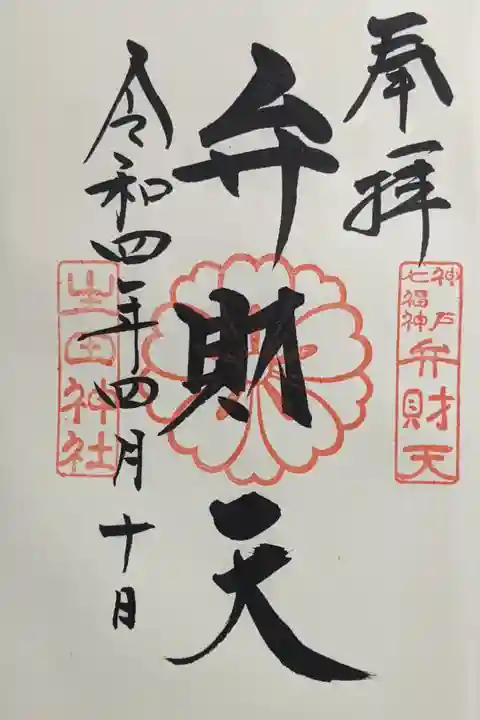 奉拝
神戸
七福神
弁財天
弁財天
令和四年四月十日
生田神社